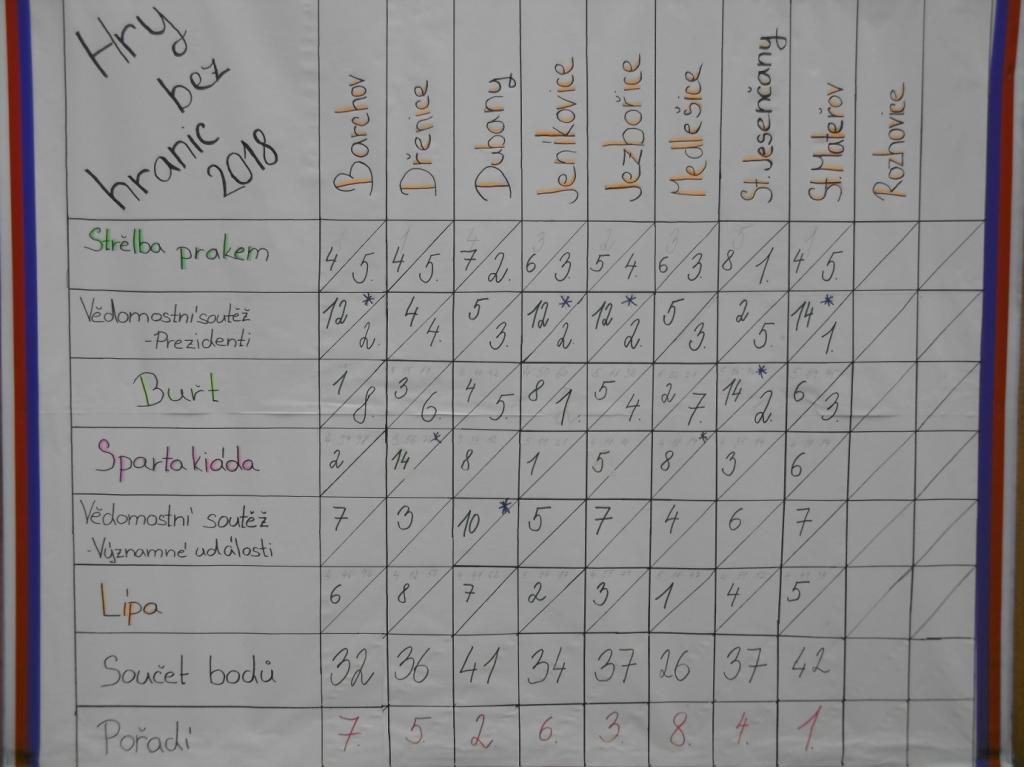 Hry
bez
hranic
2018
Barchov Dřenice Dubany Jeníkovice Jezbořice Medlešice St.Jesenčany St.Mateřov Rozhovice
Střelba prakem 4/5. 4/5. 7/2. 6/3. 5/4. 6/3. 8/1. 4/5.
Vědomostní soutěž 12*/2. 4/4. 5/3. 12*/2. 12*/2. 5/3. 2/5. 14*/1.
-Prezidenti
Buřt 1/8. 3/6. 4/5. 8/1. 5/4. 2/7. 14*/2. 6/3.
Spartakiáda 2 14* 8 1 5 8* 3 6
Vědomostní soutěž 7 3 10* 5 7 4 6 7
-Významné události
Lípa 6 8 7 2 3 1 4 5
Součet bodů 32 36 41 34 37 26 37 42
Pořadí 7. 5. 2. 6. 3. 8. 4. 1.